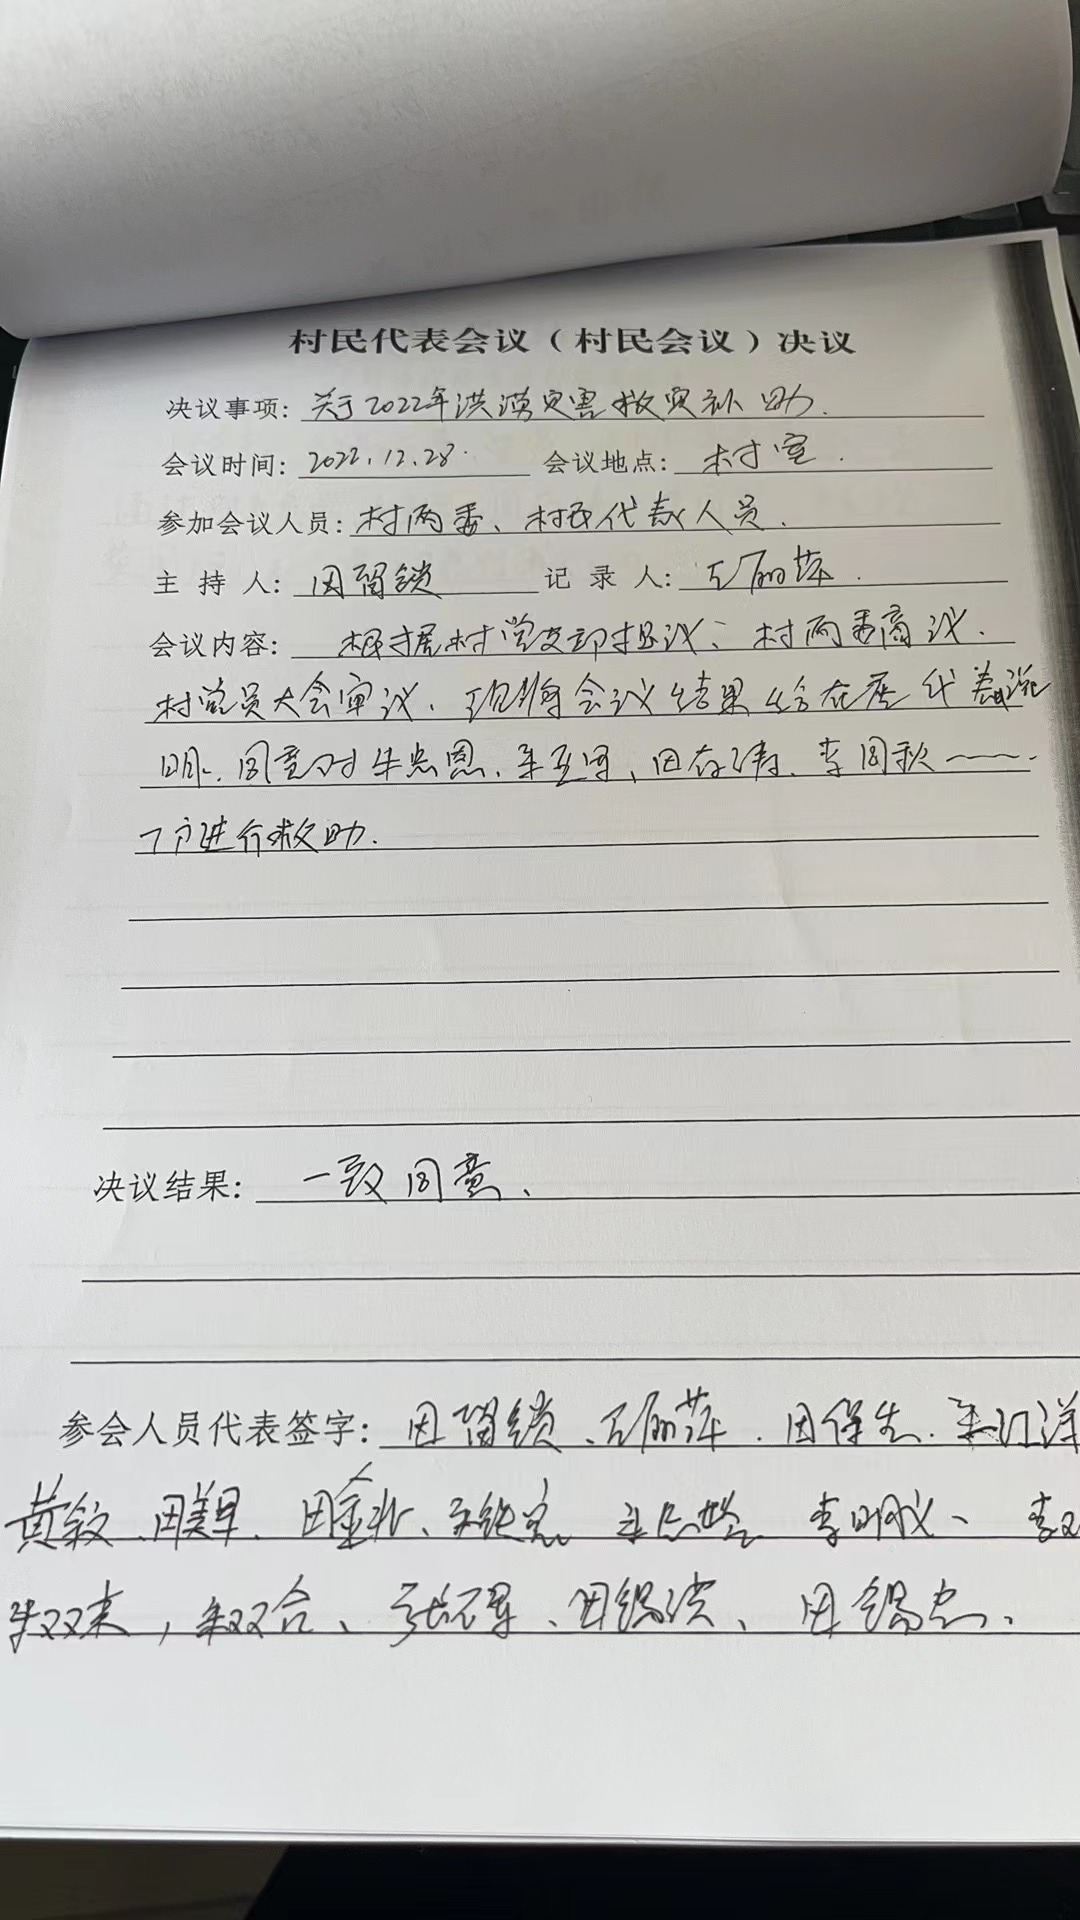 村民代表会议（村民会议）决议
决议事项：关于2022年洪涝灾害救灾补助.
会议时间：2022.12.28. 会议地点：村室.
参加会议人员：村两委、村民代表人员.
主持人：田留锁 记录人：王丽萍.
会议内容：根据村党支部提议、村两委商议.
村党员大会审议、现将会议结果给在座代表说
明、同意对 李周秋——.
7户进行救助.
决议结果：一致同意、
参会人员代表签字：田留锁、王丽萍.田保生.
黄叙、田美早、李明义、
田锡洪、田锡忠、